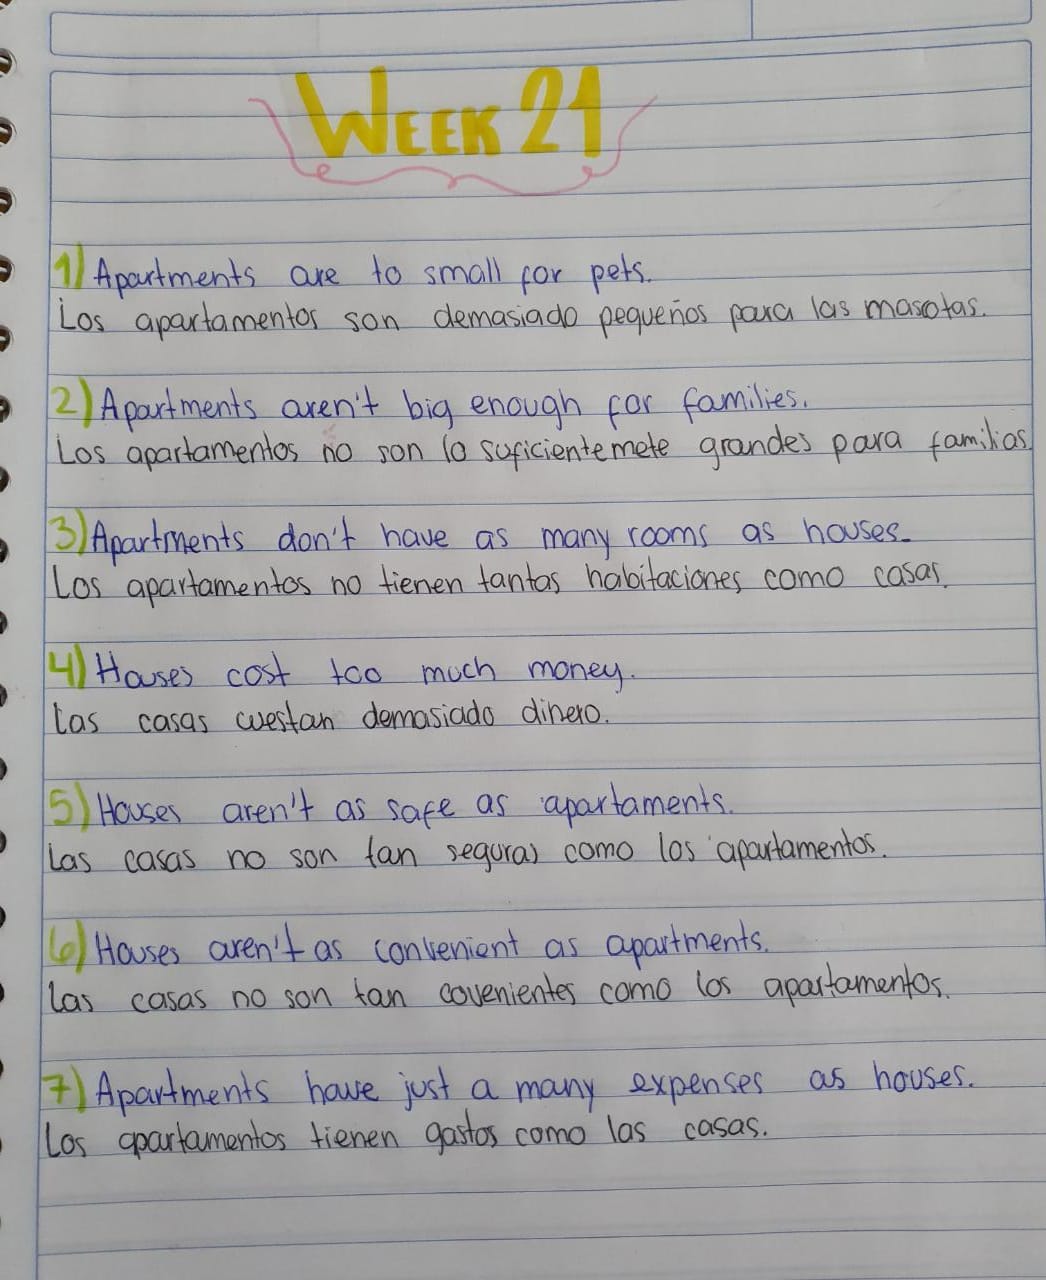 WEEK 21
1) Apartments are to small for pets.
Los apartamentos son demasiado pequeños para las mascotas.
2) Apartments aren't big enough for families.
Los apartamentos no son lo suficientemete grandes para familias
3) Apartments don't have as many rooms as houses.
Los apartamentos no tienen tantas habitaciones como casas.
4) Houses cost too much money.
Las casas cuestan demasiado dinero.
5) Houses aren't as safe as apartaments.
Las casas no son tan seguras como los apartamentos.
6) Houses aren't as convenient as apartments.
Las casas no son tan covenientes como los apartamentos.
7) Apartments have just a many expenses as houses.
Los apartamentos tienen gastos como las casas.